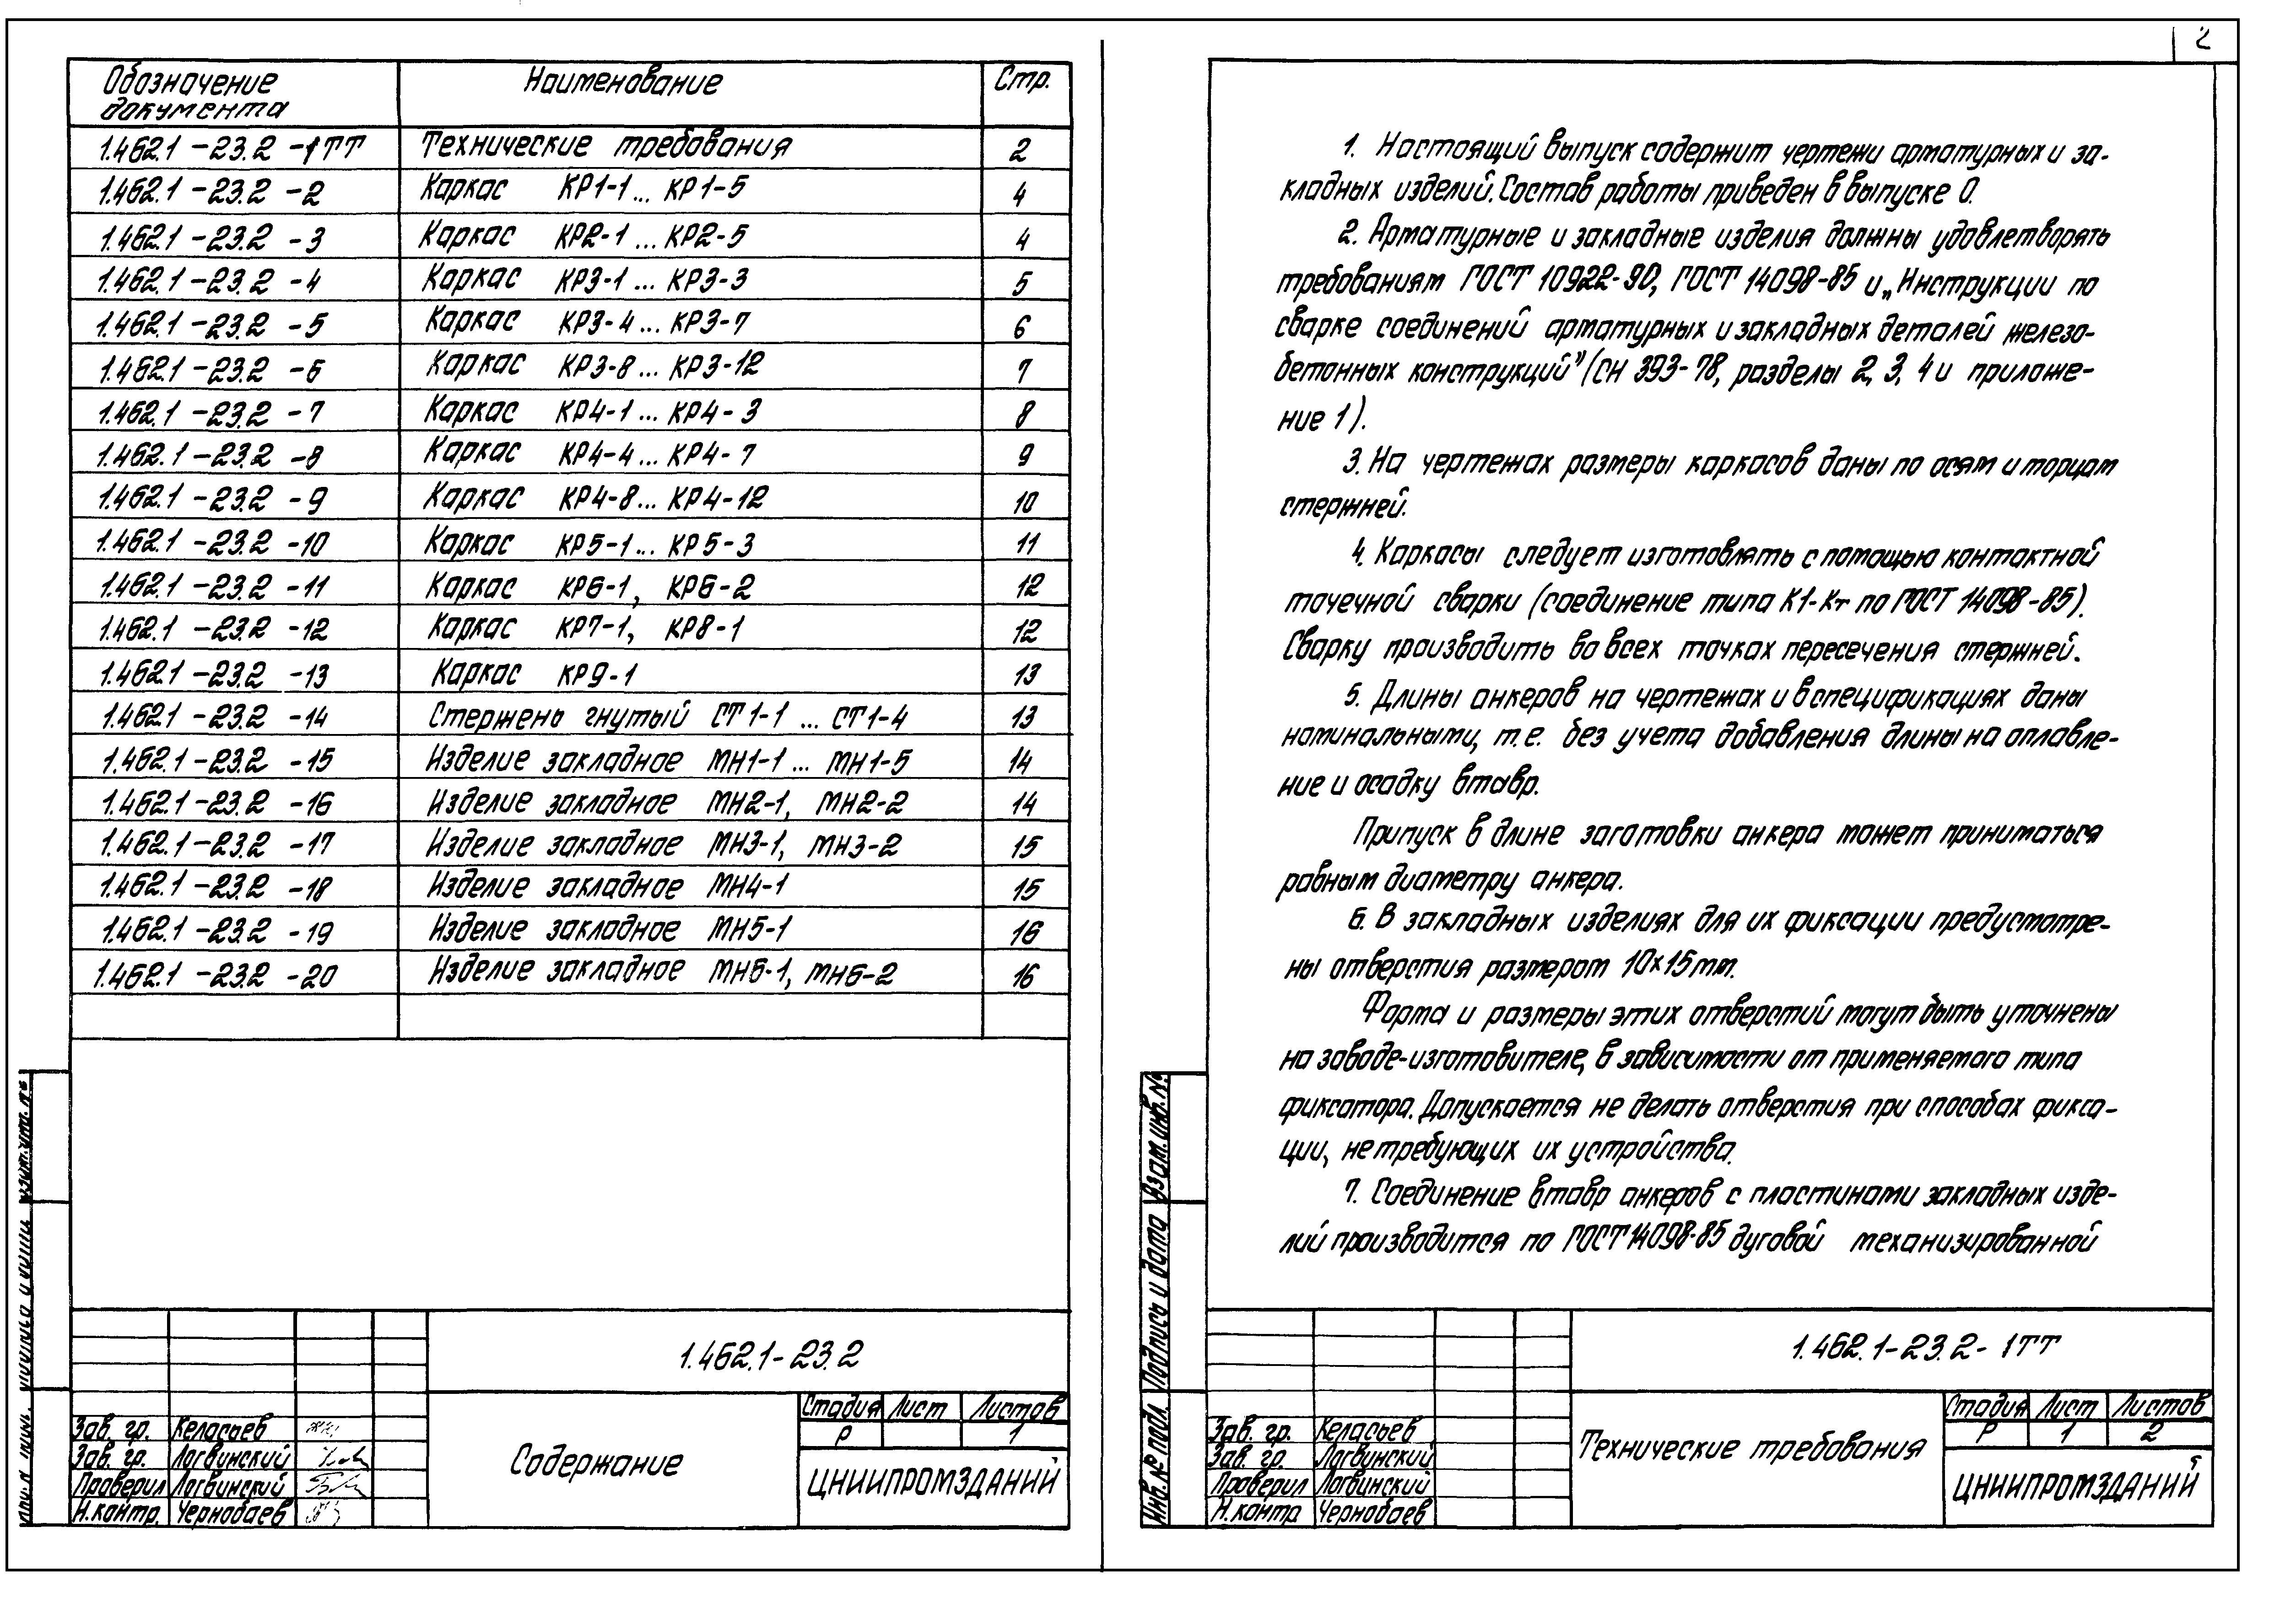 2
Обозначение документа Наименование Стр.
1.462.1-23.2-1ТТ Технические требования 2
1.462.1-23.2-2 Каркас КР1-1... КР1-5 4
1.462.1-23.2-3 Каркас КР2-1... КР2-5 4
1.462.1-23.2-4 Каркас КР3-1... КР3-3 5
1.462.1-23.2-5 Каркас КР3-4... КР3-7 6
1.462.1-23.2-6 Каркас КР3-8... КР3-12 7
1.462.1-23.2-7 Каркас КР4-1... КР4-3 8
1.462.1-23.2-8 Каркас КР4-4... КР4-7 9
1.462.1-23.2-9 Каркас КР4-8... КР4-12 10
1.462.1-23.2-10 Каркас КР5-1... КР5-3 11
1.462.1-23.2-11 Каркас КР6-1, КР6-2 12
1.462.1-23.2-12 Каркас КР7-1, КР8-1 12
1.462.1-23.2-13 Каркас КР9-1 13
1.462.1-23.2-14 Стержень гнутый СТ1-1 ... СТ1-4 13
1.462.1-23.2-15 Изделие закладное МН1-1 ... МН1-5 14
1.462.1-23.2-16 Изделие закладное МН2-1, МН2-2 14
1.462.1-23.2-17 Изделие закладное МН3-1, МН3-2 15
1.462.1-23.2-18 Изделие закладное МН4-1 15
1.462.1-23.2-19 Изделие закладное МН5-1 16
1.462.1-23.2-20 Изделие закладное МН6-1, МН6-2 16
1.462.1-23.2
Стадия Лист Листов
Р 1
Содержание
ЦНИИПРОМЗДАНИЙ
Зав. гр. Келасьев
Зав. гр. Логвинский
Проверил Логвинский
Н.контр. Чернобаев
1. Настоящий выпуск содержит чертежи арматурных и за-
кладных изделий. Состав работы приведен в выпуске 0.
2. Арматурные и закладные изделия должны удовлетворять
требованиям ГОСТ 10922-90, ГОСТ 14098-85 и „Инструкции по
сварке соединений арматурных и закладных деталей железо-
бетонных конструкций" (СН 393-78, разделы 2, 3, 4 и приложе-
ние 1).
3. На чертежах размеры каркасов даны по осям и торцам
стержней.
4. Каркасы следует изготовлять с помощью контактной
точечной сварки (соединение типа К1-Кт по ГОСТ 14098-85).
Сварку производить во всех точках пересечения стержней.
5. Длины анкеров на чертежах и в спецификациях даны
номинальными, т.е. без учета добавления длины на оплавле-
ние и осадку втавр.
Припуск в длине заготовки анкера может приниматься
равным диаметру анкера.
6. В закладных изделиях для их фиксации предусмотре-
ны отверстия размером 10×15мм.
Форма и размеры этих отверстий могут быть уточнены
на заводе-изготовителе, в зависимости от применяемого типа
фиксатора. Допускается не делать отверстия при способах фикса-
ции, не требующих их устройства.
7. Соединение втавр анкеров с пластинами закладных изде-
лий производится по ГОСТ 14098-85 дуговой механизированной
Взам. инв. №
Подпись и дата
Инв. № подл.
1.462.1-23.2-1ТТ
Стадия Лист Листов
Р 1 2
Технические требования
ЦНИИПРОМЗДАНИЙ
Зав. гр. Келасьев
Зав. гр. Логвинский
Проверил Логвинский
Н.контр Чернобаев